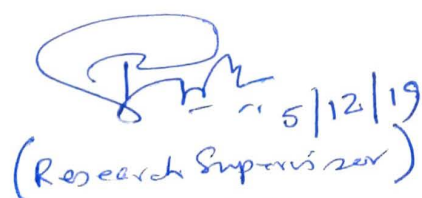 5/12/19
(Research Supervisor)